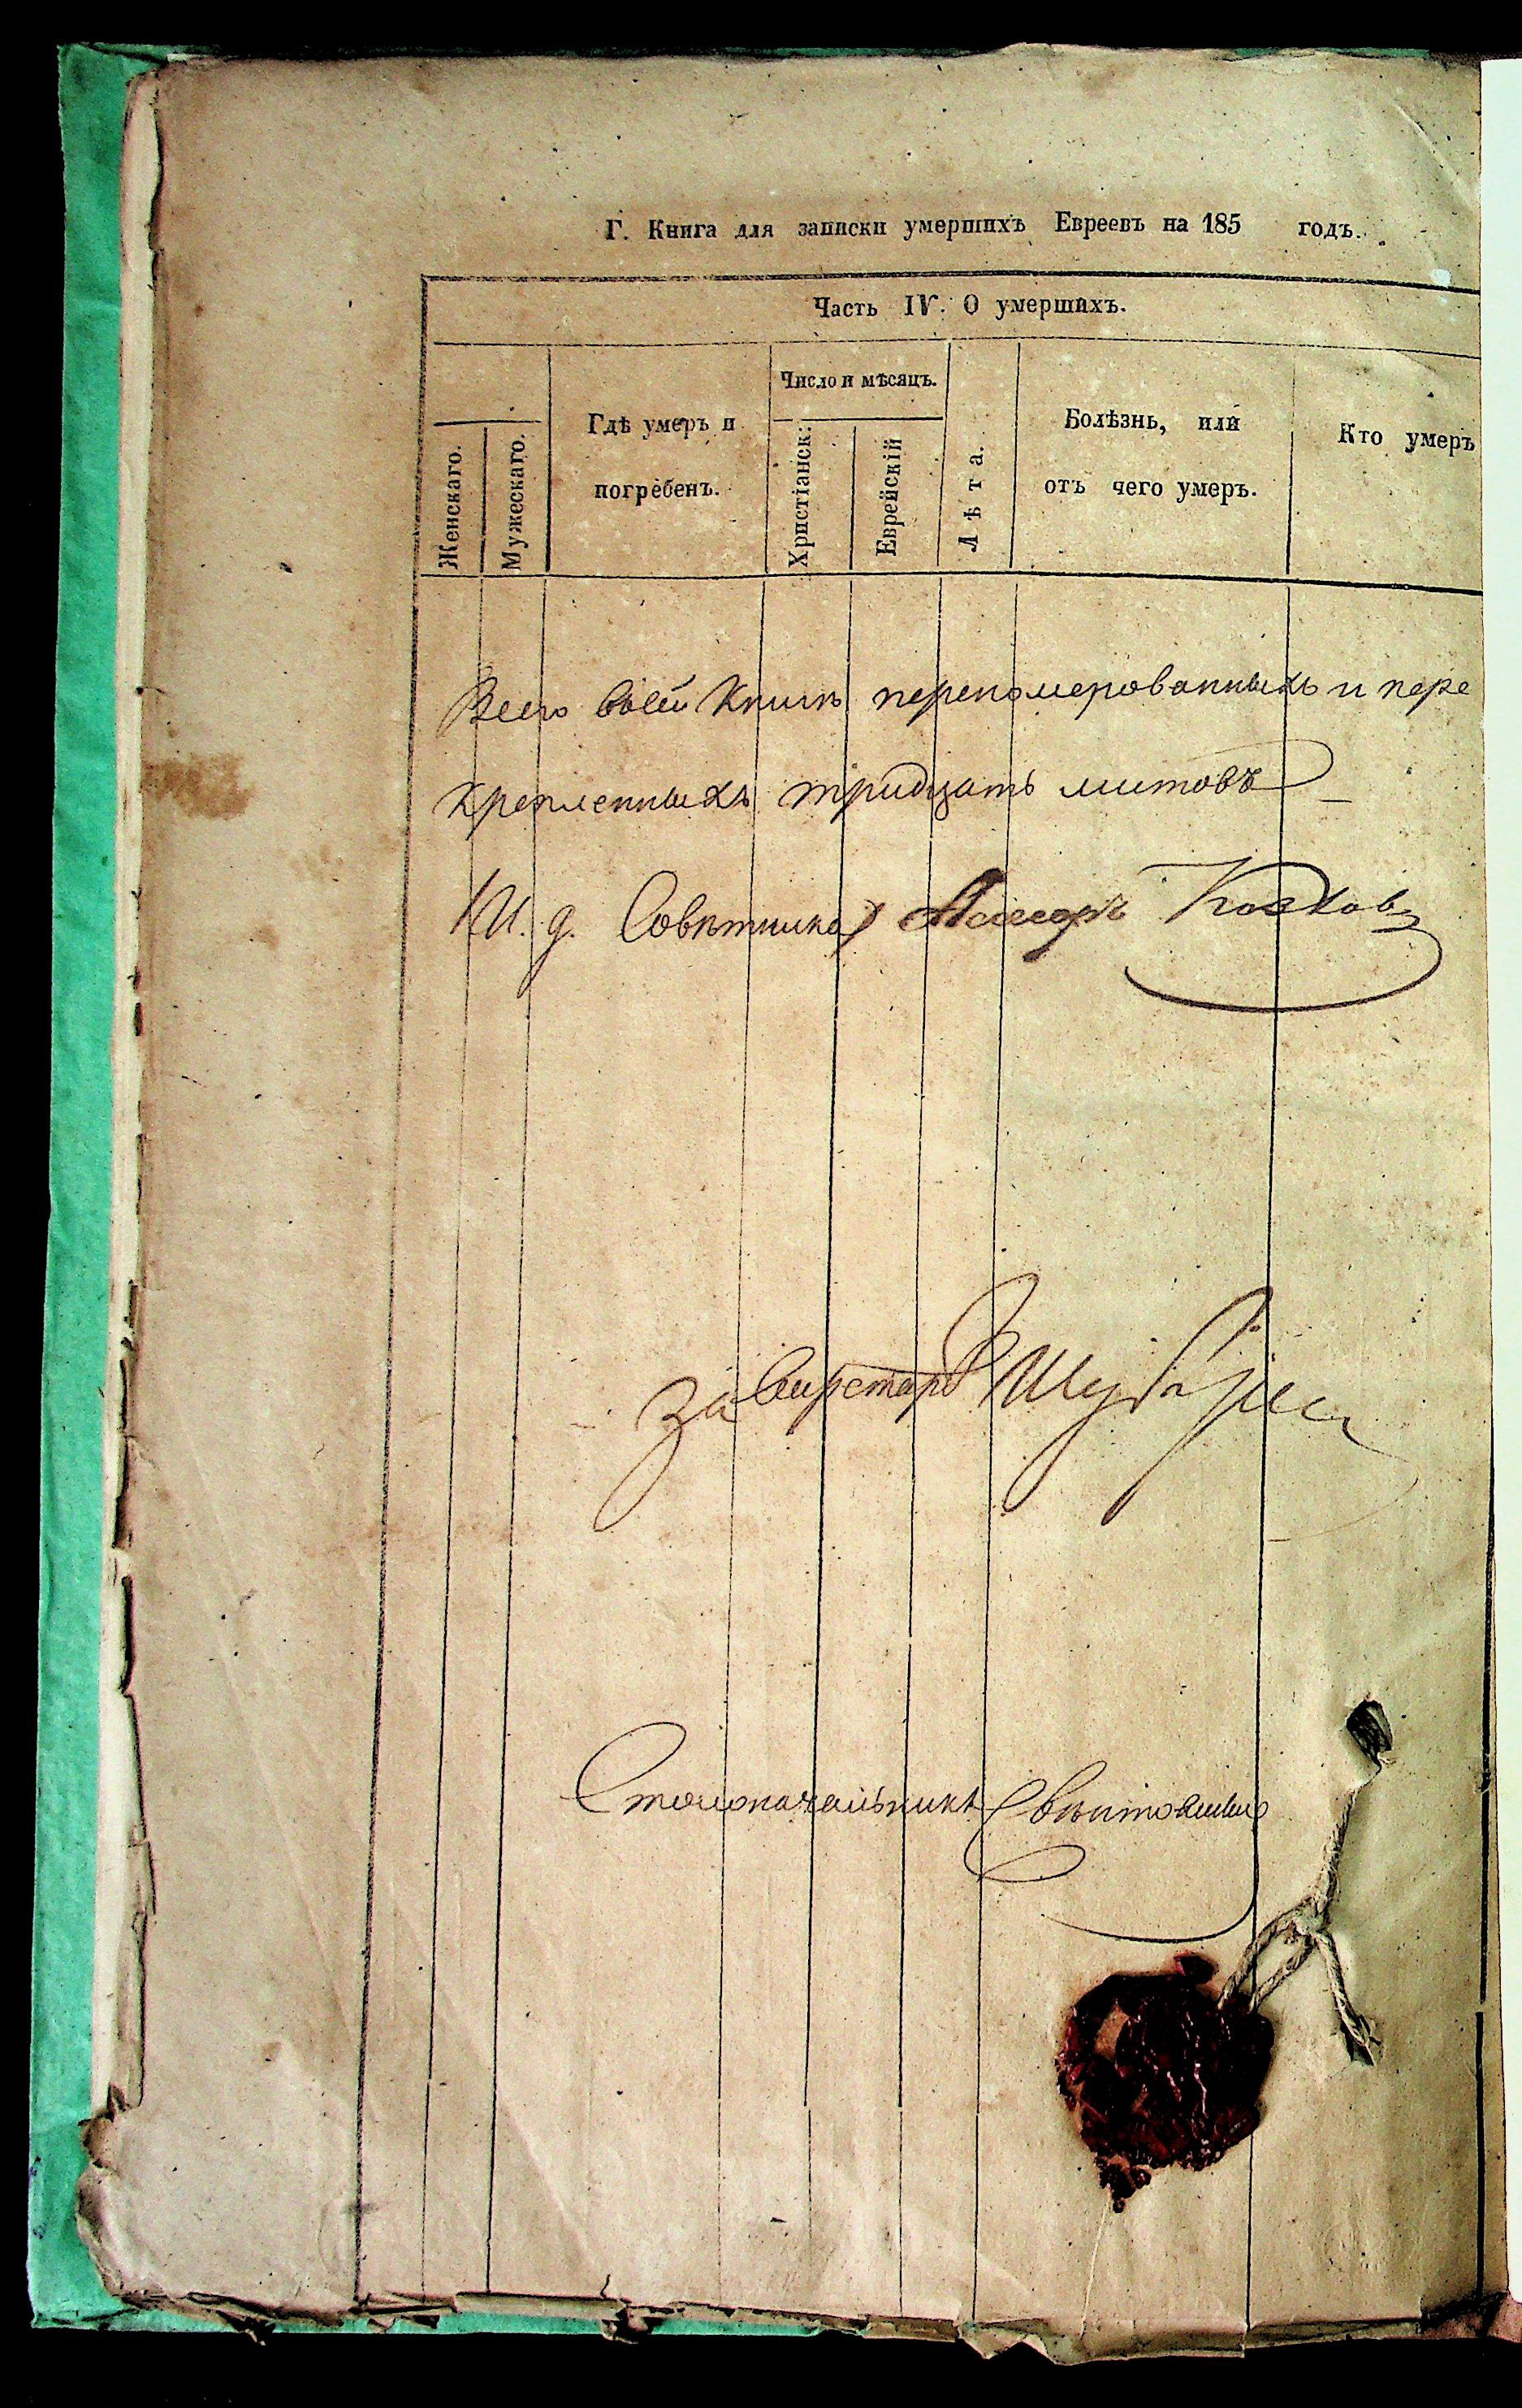 Г. Книга для записки умершихъ Евреевъ на 185 годъ.
Часть IV. О умершихъ.
Женскаго.
Мужескаго.
Гдѣ умеръ и
погребенъ.
Число и мѣсяцъ.
Христіанск:
Еврейскій
Лѣта.
Болѣзнь, или
отъ чего умеръ.
Кто умеръ
Всего въ сей Книгѣ перенумерованныхъ и пере
крепленныхъ тридцать листовъ
И. д. Совѣтника Асессоръ
За
Столоначальникъ